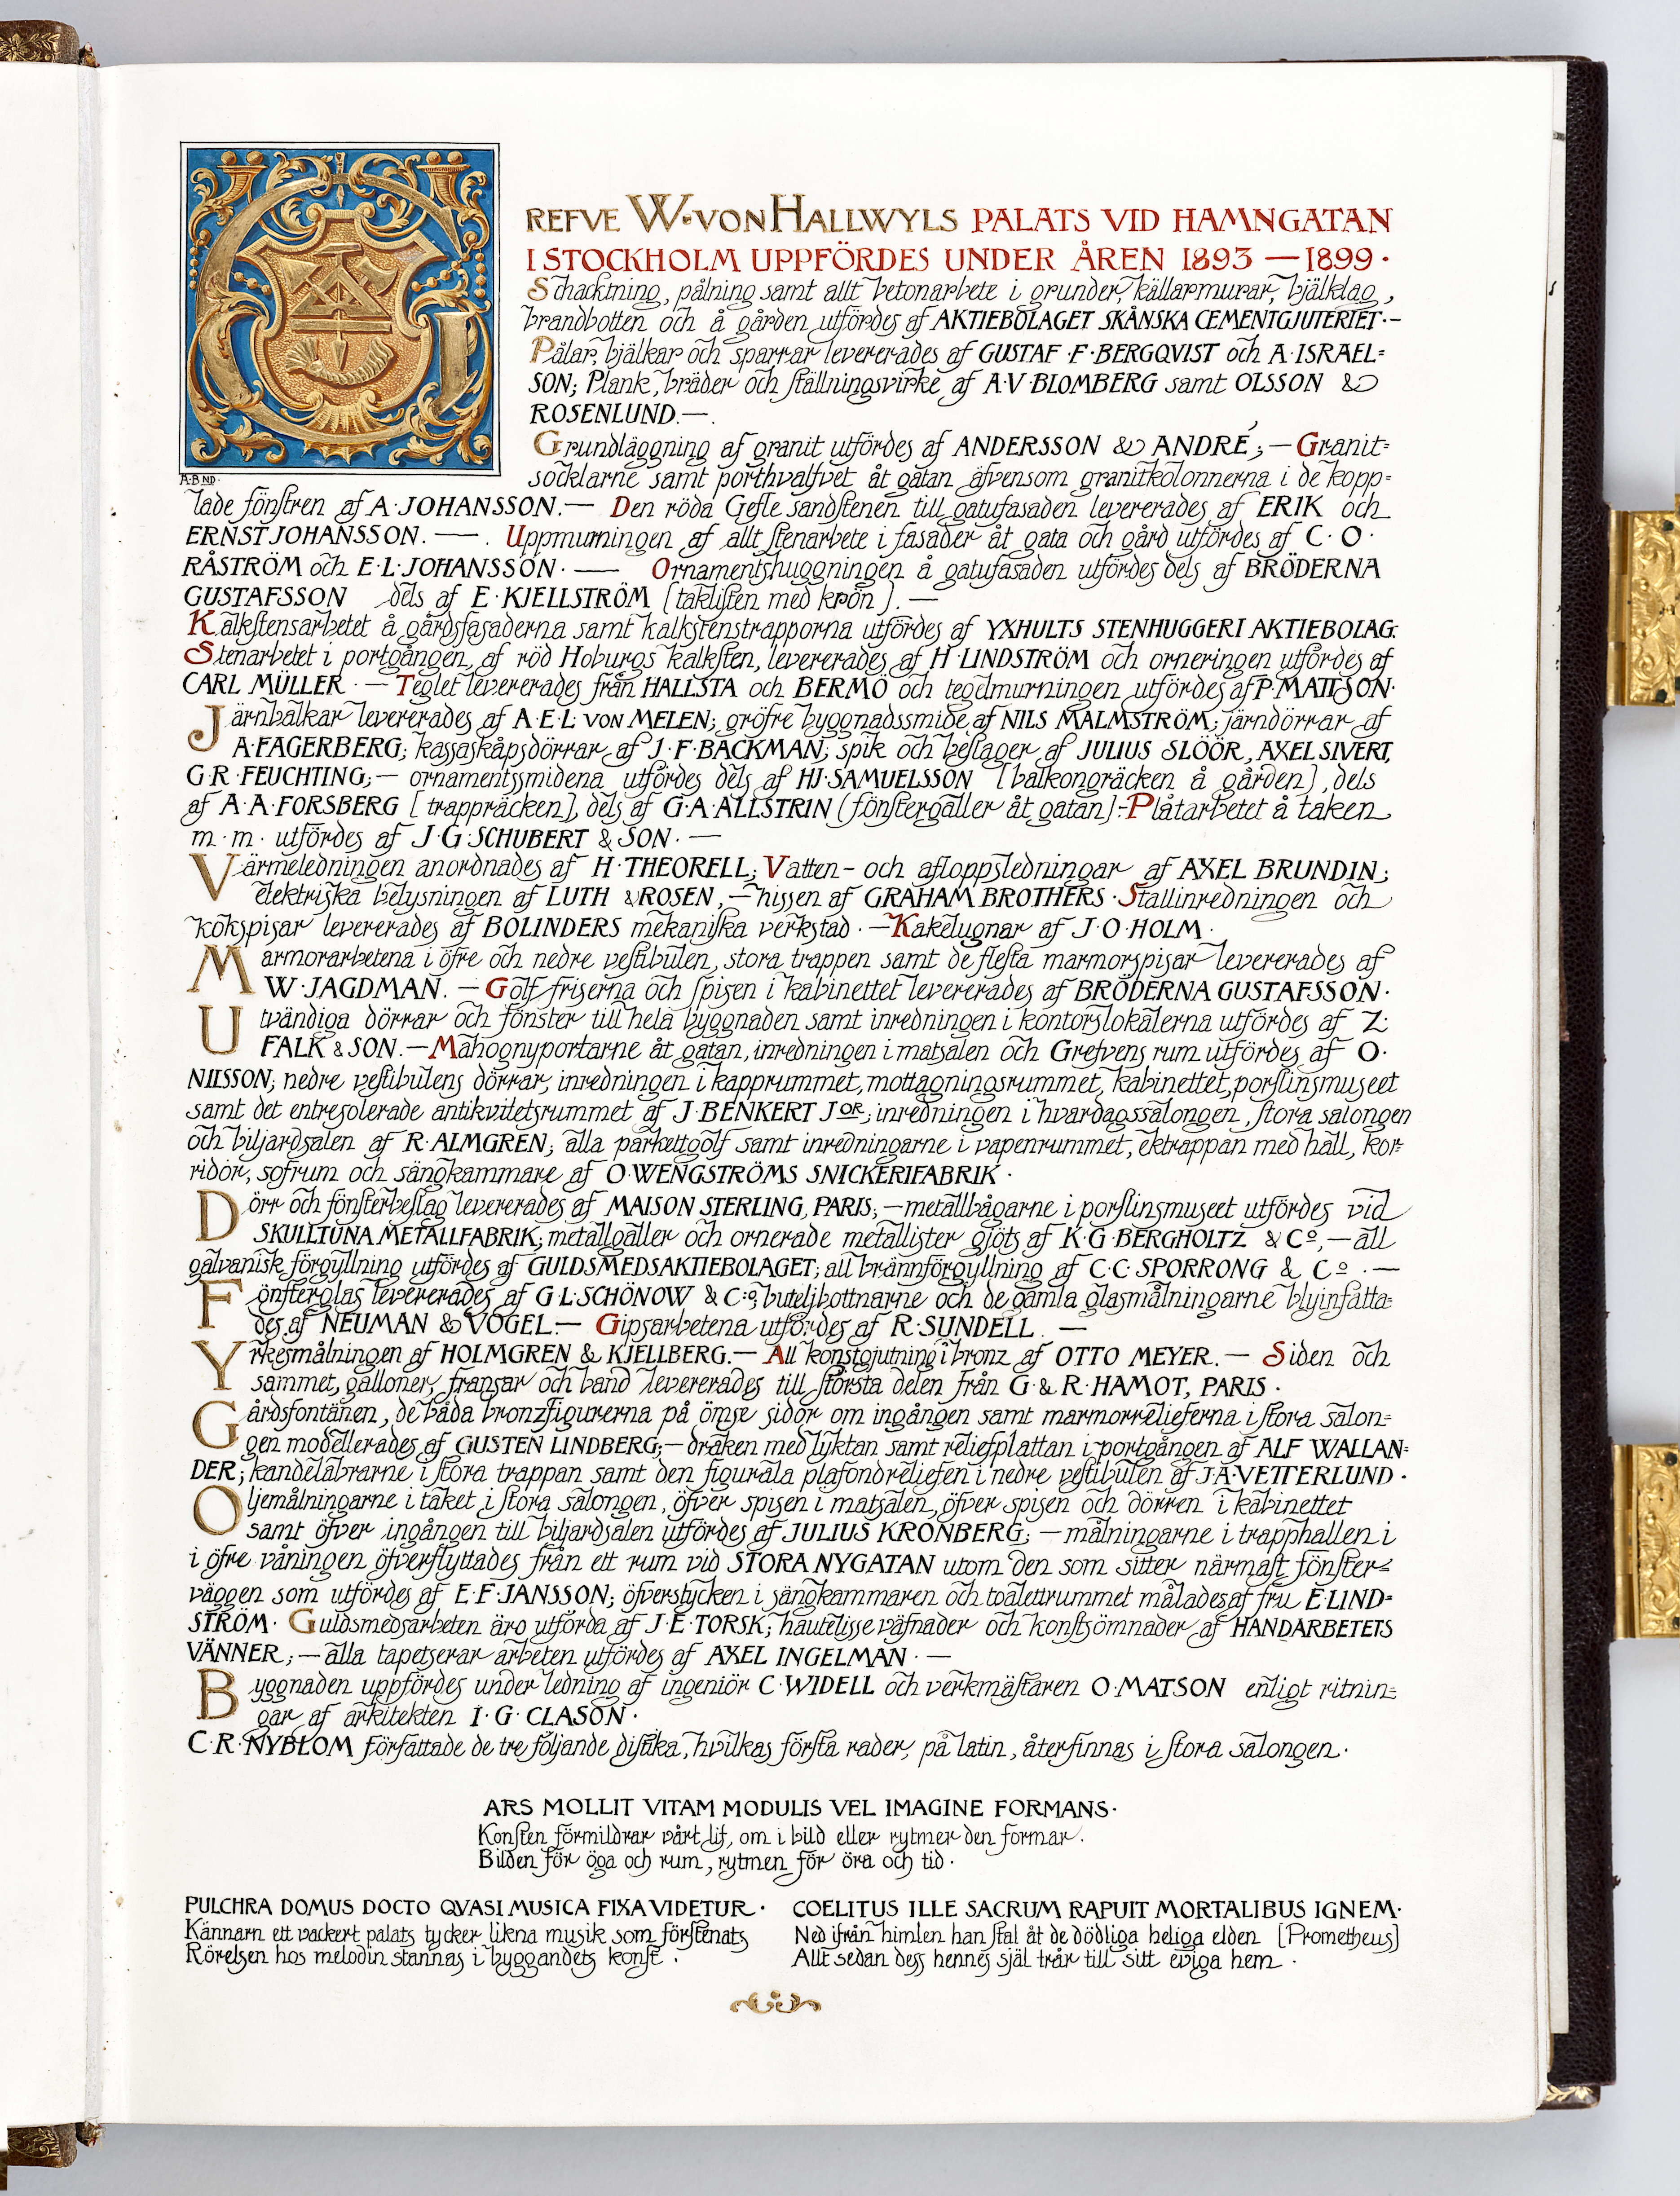 GREFVE W·VON HALLWYLS PALATS VID HAMNGATAN
I STOCKHOLM UPPFÖRDES UNDER ÅREN 1893 — 1899·
Schacktning, pålning samt allt betonarbete i grunder, källarmurar, bjälklag,
brandbotten och å gården utfördes af AKTIEBOLAGET SKÅNSKA CEMENTGJUTERIET·–
Pålar, bjälkar och sparrar levererades af GUSTAF·F·BERGQVIST och A·ISRAEL=
SON; Plank, bräder och ställningsvirke af A·V·BLOMBERG samt OLSSON &
ROSENLUND.—.
Grundläggning af granit utfördes af ANDERSSON & ANDRÉ;— Granit=
socklarne samt porthvalfvet åt gatan äfvensom granitkolonnerna i de kopp=
A·BND·
lade fönstren af A·JOHANSSON.— Den röda Gefle sandstenen till gatufasaden levererades af ERIK och
ERNST JOHANSSON.—. Uppmurningen af allt stenarbete i fasader åt gata och gård utfördes af C·O·
RÅSTRÖM och E·L·JOHANSSON·— Ornamentshuggningen å gatufasaden utfördes dels af BRÖDERNA
GUSTAFSSON dels af E·KJELLSTRÖM (taklisten med krön).—
Kalkstensarbetet å gårdsfasaderna samt kalkstenstrapporna utfördes af YXHULTS STENHUGGERI AKTIEBOLAG:
Stenarbetet i portgången, af röd Hoburgs kalksten, levererades af H·LINDSTRÖM och orneringen utfördes af
CARL MÜLLER·— Teglet levererades från HALLSTA och BERMÖ och tegelmurningen utfördes af P·MATTSON·
Järnbalkar levererades af A·E·L·VON MELEN; gröfre byggnadssmide af NILS MALMSTRÖM; järndörrar af
A·FAGERBERG; kassaskåpsdörrar af J·F·BACKMAN; spik och beslager af JULIUS SLÖÖR, AXEL SIVERT,
G·R·FEUCHTING;— ornamentssmidena utfördes dels af HJ·SAMUELSSON (balkongräcken å gården), dels
af A·A·FORSBERG (trappräcken), dels af G·A·ALLSTRIN (fönstergaller åt gatan):–Plåtarbetet å taken
m·m· utfördes af J·G·SCHUBERT & SON·—
Värmeledningen anordnades af H·THEORELL; Vatten- och afloppsledningar af AXEL BRUNDIN;
elektriska belysningen af LUTH & ROSEN,—hissen af GRAHAM BROTHERS·Stallinredningen och
kokspisar levererades af BOLINDERS mekaniska verkstad·—Kakelugnar af J·O·HOLM·
Marmorarbetena i öfre och nedre vestibulen, stora trappen samt de flesta marmorspisar levererades af
W·JAGDMAN.—Golf friserna och spisen i kabinettet levererades af BRÖDERNA GUSTAFSSON·
Utvändiga dörrar och fönster till hela byggnaden samt inredningen i kontorslokalerna utfördes af Z:
FALK & SON.—Mahognyportarne åt gatan, inredningen i matsalen och Grefvens rum utfördes af O·
NILSSON; nedre vestibulens dörrar, inredningen i kapprummet, mottagningsrummet, kabinettet, porslinsmuseet
samt det entresolerade antikvitetsrummet af J·BENKERT JOR; inredningen i hvardagssalongen, stora salongen
och biljardsalen af R·ALMGREN; alla parkettgolf samt inredningarne i vapenrummet, ektrappan med hall, kor=
ridor, sofrum och sängkammare af O·WENGSTRÖMS SNICKERIFABRIK·
Dörr och fönsterbeslag levererades af MAISON STERLING, PARIS;—metallbågarne i porslinsmuseet utfördes vid
SKULLTUNA METALLFABRIK; metallgaller och ornerade metallister gjöts af K·G·BERGHOLTZ & Co,—all
galvanisk förgyllning utfördes af GULDSMEDSAKTIEBOLAGET; all brännförgyllning af C·C·SPORRONG & Co·—
Fönsterglas levererades af G·L·SCHÖNOW & C:o; buteljbottnarne och de gamla glasmålningarne blyinfatta=
des af NEUMAN & VOGEL.— Gipsarbetena utfördes af R·SUNDELL.—
Yrkesmålningen af HOLMGREN & KJELLBERG.— All konstgjutning i bronz af OTTO MEYER.— Siden och
sammet, galloner, fransar och band levererades till största delen från G·& R·HAMOT, PARIS·
Gårdsfontänen, de båda bronzfigurerna på ömse sidor om ingången samt marmorrelieferna i stora salon=
gen modellerades af GUSTEN LINDBERG;—draken med lyktan samt reliefplattan i portgången af ALF WALLAN=
DER; kandelabrarne i stora trappan samt den figurala plafondreliefen i nedre vestibulen af J·A·VETTERLUND·
Oljemålningarne i taket i stora salongen, öfver spisen i matsalen, öfver spisen och dörren i kabinettet
samt öfver ingången till biljardsalen utfördes af JULIUS KRONBERG;—målningarne i trapphallen i
i öfre våningen öfverflyttades från ett rum vid STORA NYGATAN utom den som sitter närmast fönster=
väggen som utfördes af E·F·JANSSON; öfverstycken i sängkammaren och toalettrummet målades af fru E·LIND=
STRÖM· Guldsmedsarbeten äro utförda af J·E·TORSK; hautelisse väfnader och konstsömnader af HANDARBETETS
VÄNNER;—alla tapetserar arbeten utfördes af AXEL INGELMAN·—
Byggnaden uppfördes under ledning af ingeniör C·WIDELL och verkmästaren O·MATSON enligt ritnin=
gar af arkitekten I·G·CLASON·
C·R·NYBLOM författade de tre följande distika, hvilkas första rader, på latin, återfinnas i stora salongen·
ARS MOLLIT VITAM MODULIS VEL IMAGINE FORMANS·
Konsten förmildrar vårt lif, om i bild eller rytmer den formar.
Bilden för öga och rum, rytmen för öra och tid·
PULCHRA DOMUS DOCTO QVASI MUSICA FIXA VIDETUR·
Kännarn ett vackert palats tycker likna musik som förstenats
Rörelsen hos melodin stannas i byggandets konst.
COELITUS ILLE SACRUM RAPUIT MORTALIBUS IGNEM·
Ned ifrån himlen han stal åt de dödliga heliga elden (Prometheus)
Allt sedan dess hennes själ trår till sitt eviga hem·